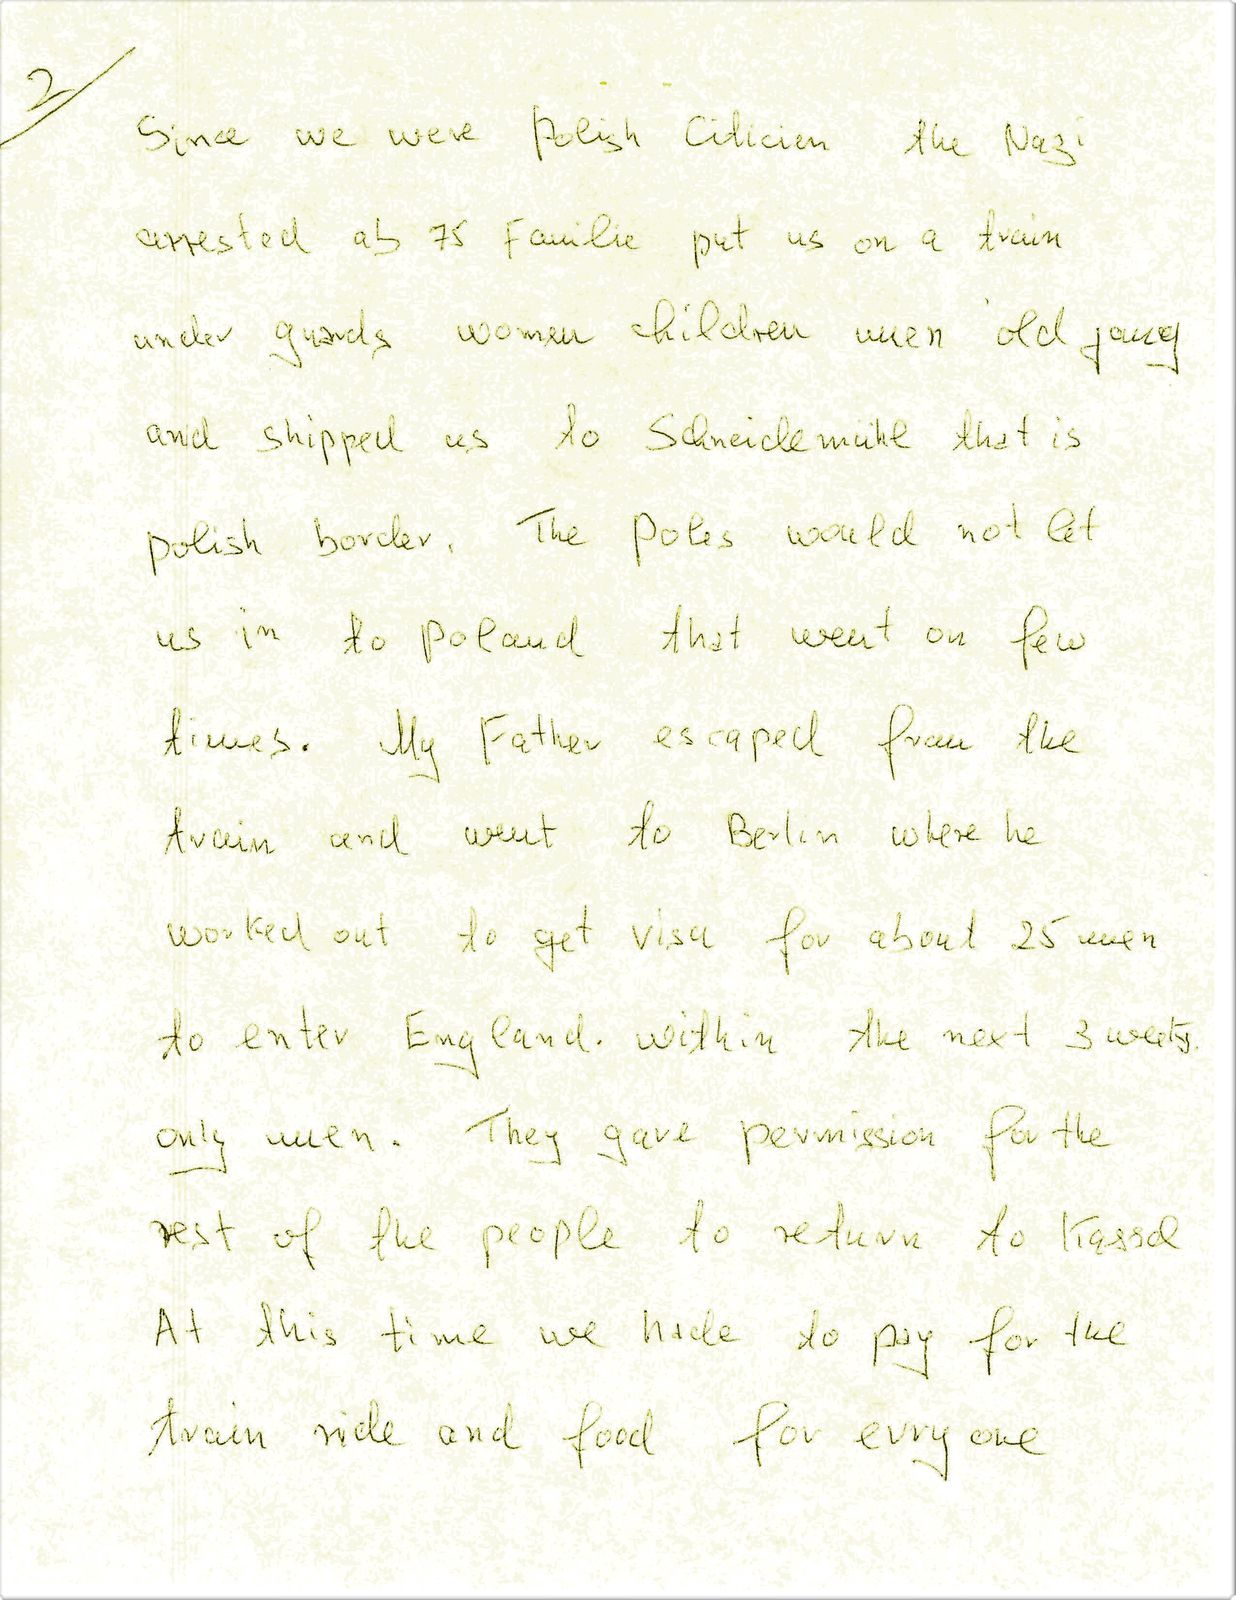 2
Since we were Polish Citicien the Nazi
arrested ab 75 Familie put us on a train
under guards women children men old joung
and shipped us to Schneidemühl that is
polish border. The Poles would not let
us in to Poland that went on few
times. My Father escaped from the
train and went to Berlin where he
worked out to get visa for about 25 men
to enter England. within the next 3 weeks.
only men. They gave permission for the
rest of the people to return to Kassel
At this time we hade to pay for the
train ride and food for evry one